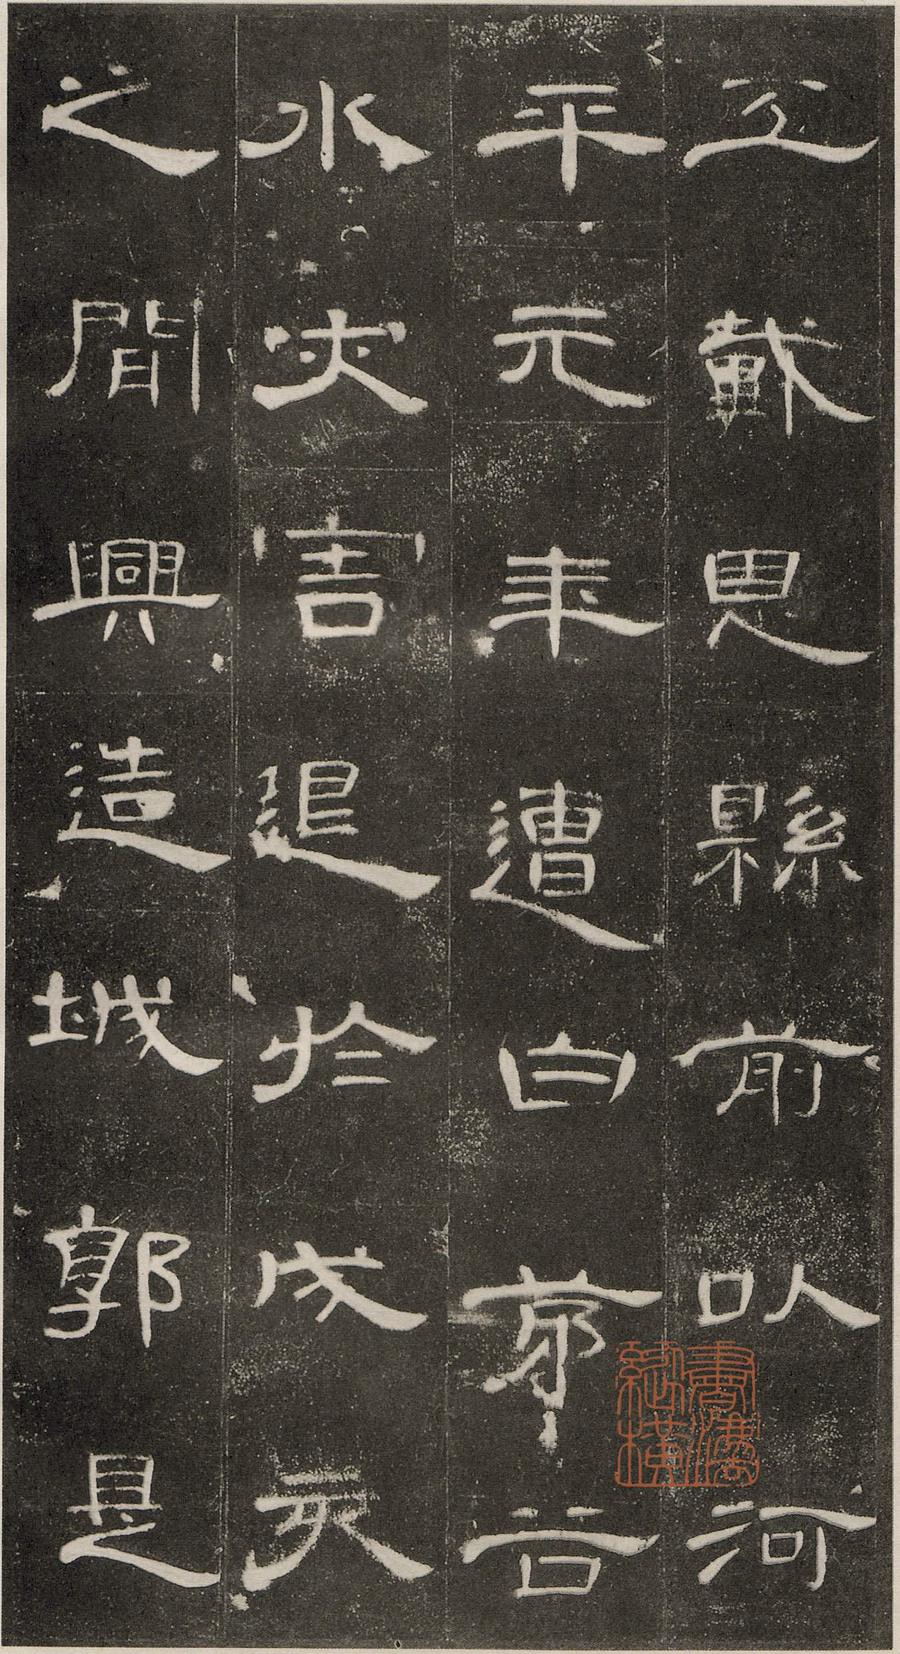 工戴恩縣前以河
平元年遭白茅谷
水灾害退於戌亥
之間興造城郭是